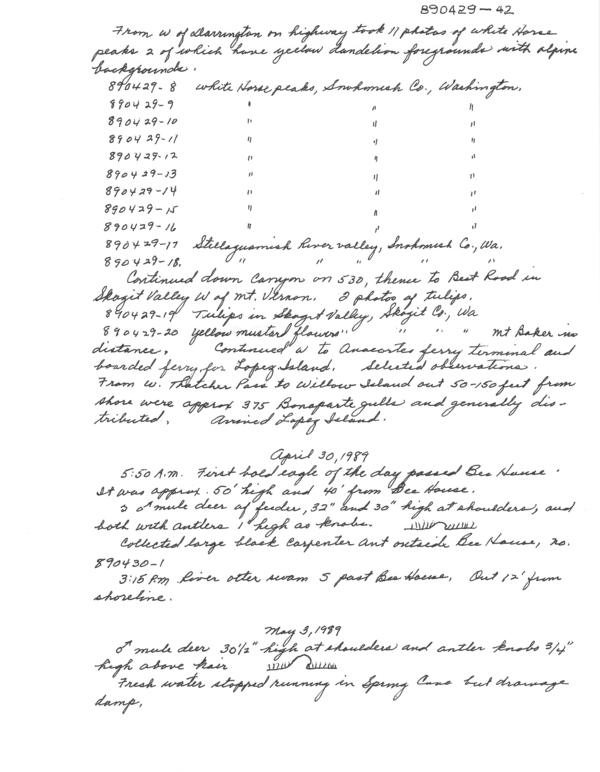 890429-42
From W of Darrington on highway took 11 photos of White Horse
peaks 2 of which have yellow dandelion foregrounds with alpine
backgrounds.
890429-8 White Horse peaks, Snohomish Co., Washington.
890429-9 " " "
890429-10 " " "
890429-11 " " "
890429-12 " " "
890429-13 " " "
890429-14 " " "
890429-15 " " "
890429-16 " " "
890429-17 Stillaguamish River valley, Snohomish Co., Wa.
890429-18. " " " " "
Continued down Canyon on 530, thence to Best Road in
Skagit Valley W of Mt. Vernon. 2 photos of tulips.
890429-19 Tulips in Skagit Valley, Skagit Co., Wa
890429-20 yellow mustard flowers " " " " Mt Baker in
distance. Continued W to Anacortes ferry terminal and
boarded ferry for Lopez Island. Selected observations.
From W. Thatcher Pass to Willow Island out 50-150 feet from
shore were approx 375 Bonaparte gulls and generally dis-
tributed. Arrived Lopez Island.
April 30, 1989
5:50 A.m. First bald eagle of the day passed Bee House.
It was approx. 50' high and 40' from Bee House.
2 ♂ mule deer at feeder, 32" and 30" high at shoulders, and
both with antlers 1" high as knobs.
Collected large black carpenter ant outside Bee House, no.
890430-1
3:15 P.m River otter swam S past Bee House. Out 12' from
shoreline.
May 3, 1989
♂ mule deer 30 1/2" high at shoulders and antler knobs 3/4"
high above hair
Fresh water stopped running in Spring Cove but drainage
damp.